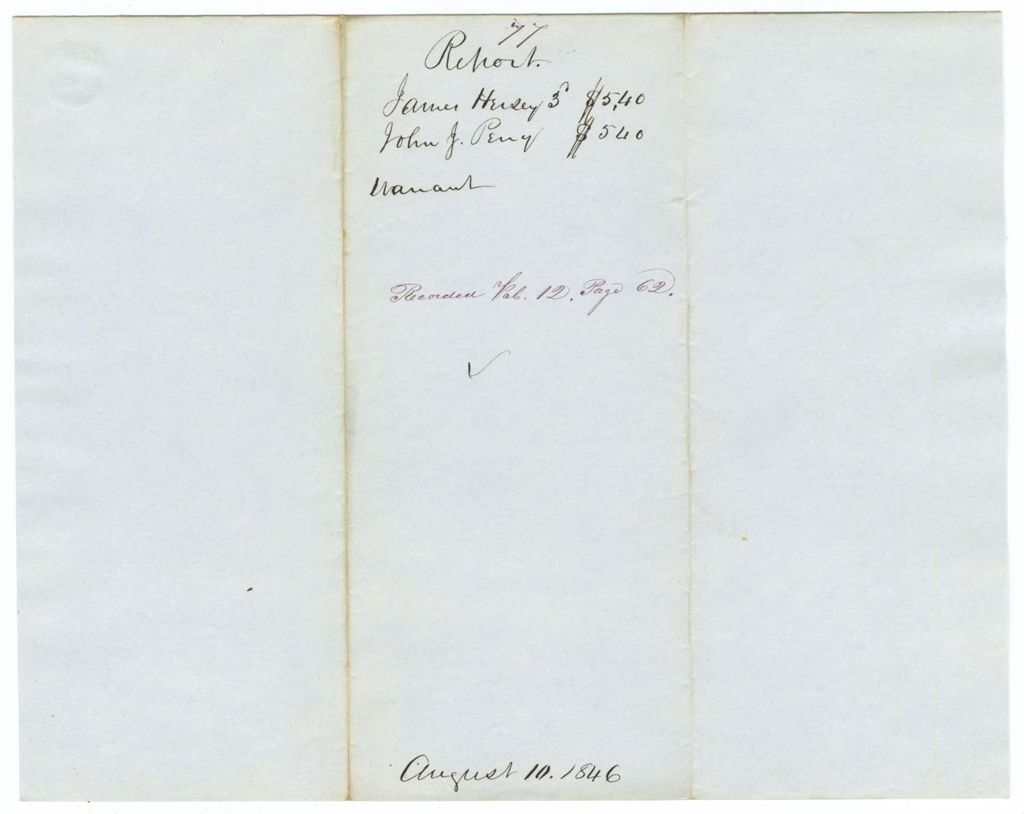 77
Report.
James Hersey 3d $5,40
John J. Perry $540
Warrant
Recorded Vol. 12. Page 62.
August 10. 1846